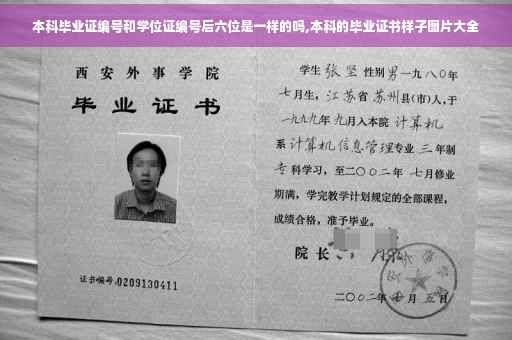 本科毕业证编号和学位证编号后六位是一样的吗,本科的毕业证书样子图片大全
西安外事学院
毕业证书
证书编号:0209130411
学生 张坚 性别男 一九八〇年
七月生，江苏省苏州县(市)人,于
一九九九年九月入本院 计算机
系 计算机信息管理 专业 三 年制
专科学习，至二〇〇二年 七月修业
期满，学完教学计划规定的全部课程，
成绩合格，准予毕业。
院长
二〇〇二年 月 五日